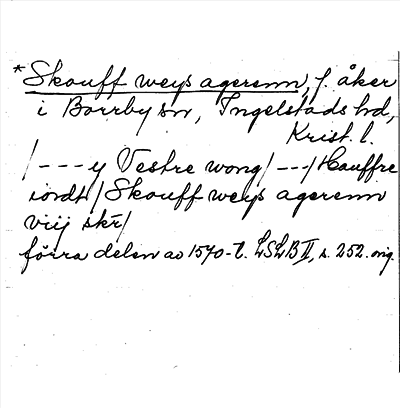 *Skouff weys agerenn, f. åker
i Borrby sn, Ingelstads hd,
Krist. l.
/---y Vestre wong/---/Hauffre
iordt/Skouff weys agerenn
viij skr/
förra delen av 1570-t. LSLB II, s. 252. orig.